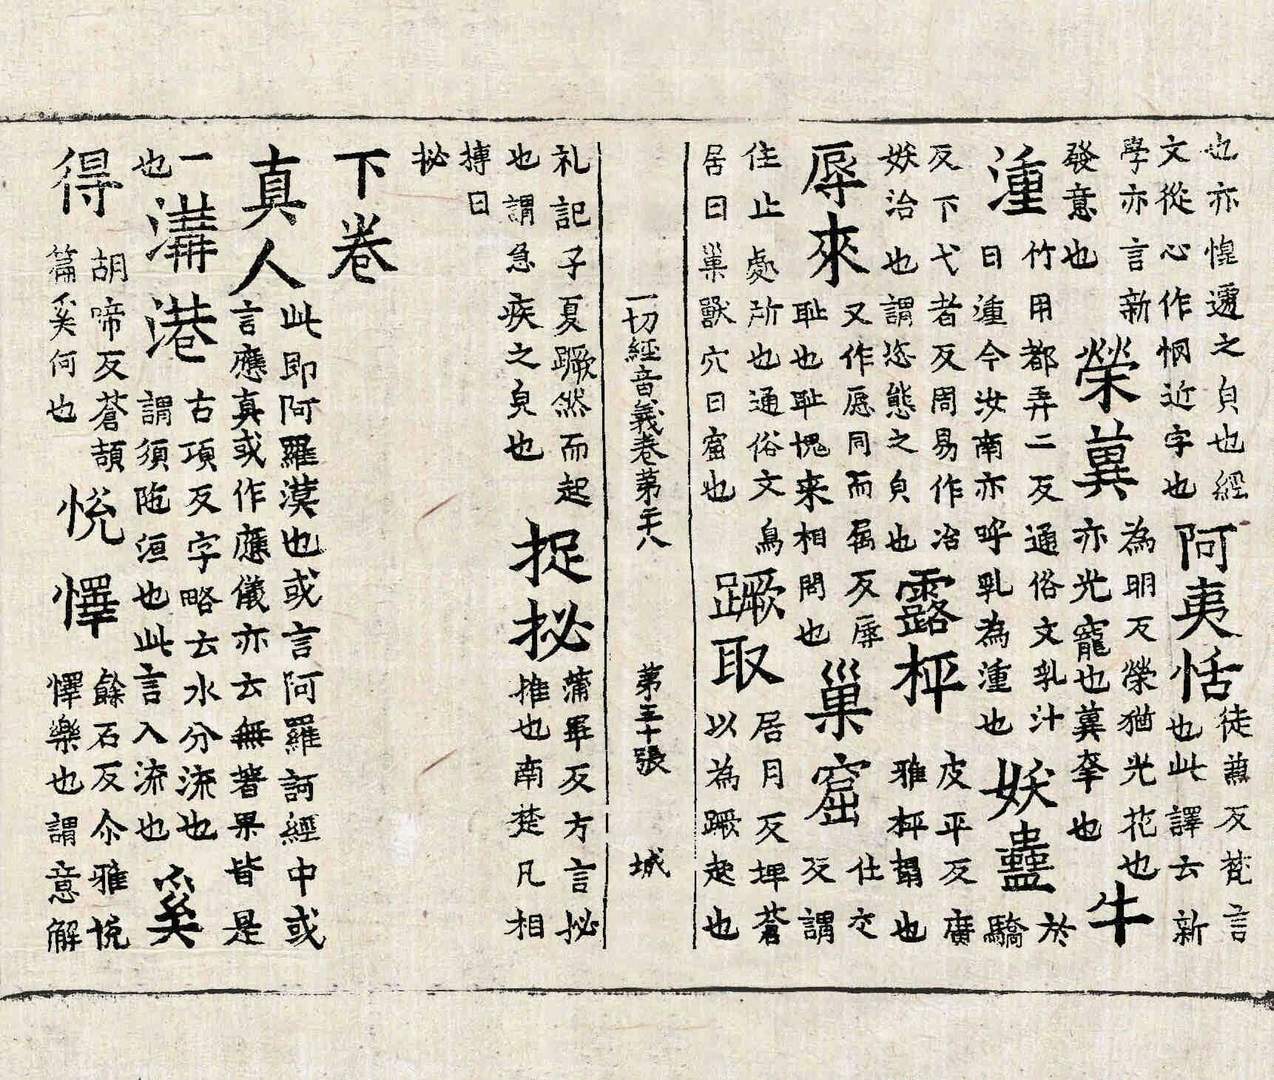 也亦惶遽之皃也經文從心作惘近字也阿夷恬徒兼反梵言也此譯云新
學亦言新發意也榮蓂為明反榮猶光花也亦光寵也蓂莑也牛
湩竹用都弄二反通俗文乳汁曰湩今汝南亦呼乳為湩也妖蠱於驕
反下弋者反周易作冶妖冶也謂恣態之皃也露枰皮平反廣雅枰榻也
辱來又作㥛同而屬反辱耻也耻愧来相問也巢窟仕交反謂
住止處所也通俗文鳥居曰巢獸穴曰窟也蹶取居月反埤蒼以為蹶起也
一切經音義卷第二十八 第三十張 城
礼記子夏蹶然而起也謂急疾之皃也捉㧙蒲畢反方言㧙推也南楚凡相
搏曰㧙
下卷
真人此即阿羅漢也或言阿羅訶經中或言應真或作應儀亦云無著果皆是
一也溝港古項反字略云水分流也謂須陁洹也此言入流也奚
得胡啼反蒼頡篇奚何也悅懌餘石反尒雅悅懌樂也謂意解